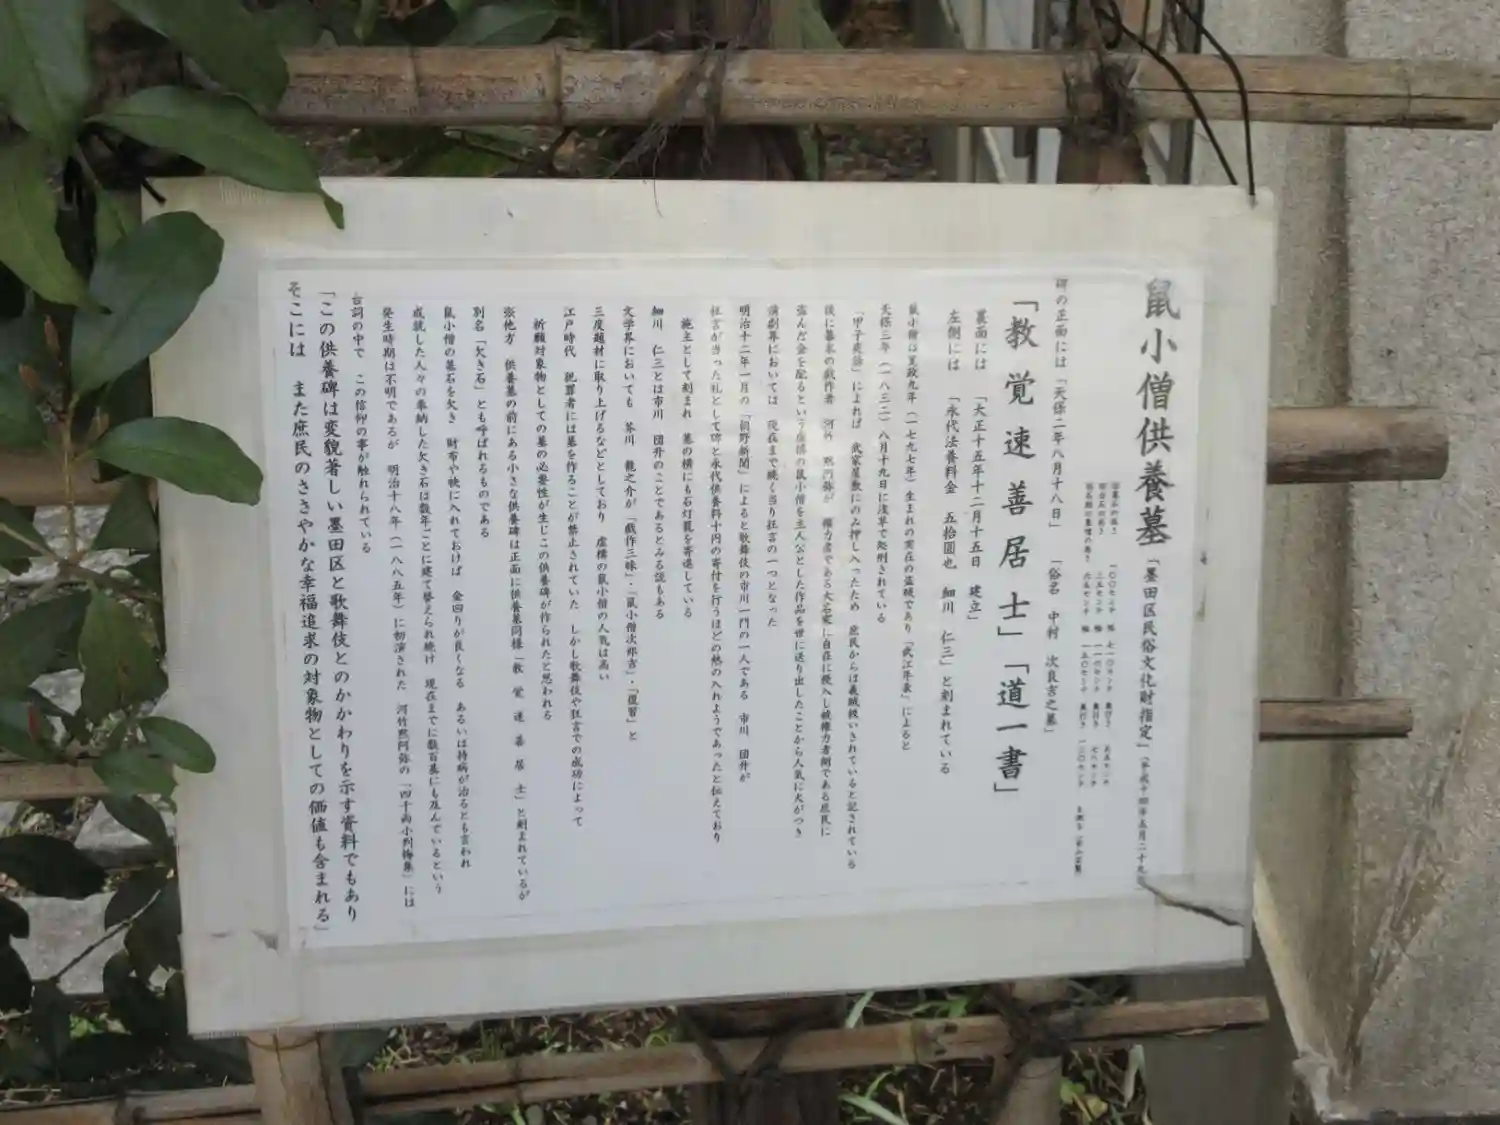 鼠小僧供養墓 「墨田区民俗文化財指定」（平成十四年五月二十九
碑の正面には 「天保二年八月十八日」 「俗名 中村 次良吉之墓」
「教覚速善居士」「道一書」
裏面には 「大正十五年十二月十五日 建立」
左側には 「永代法養料金 五拾圓也 細川 仁三」と刻まれている
鼠小僧は寛政九年（一七九七年）生まれの実在の盗賊であり「武江年表」によると
天保三年（一八三二）八月十九日に浅草で処刑されている
「甲子夜話」によれば 武家屋敷にのみ押し入ったため 庶民からは義賊扱いされていると記されている
後に幕末の戯作者 河竹 黙阿弥が 権力者である大名家に自在に侵入し被権力者側である庶民に
盗んだ金を配るという虚構の鼠小僧を主人公とした作品を世に送り出したことから人気に火がつき
演劇界においては 現在まで続く当り狂言の一つとなった
明治十二年一月の「朝野新聞」によると歌舞伎の市川一門の一人である 市川 団升が
狂言が当った礼として碑と永代供養料十円の寄付を行うほどの熱の入れようであったと伝えており
施主として刻まれ 墓の横にも石灯籠を寄進している
細川 仁三とは市川 団升のことであるとみる説もある
文学界においても 芥川 龍之介が「戯作三昧」・「鼠小僧次郎吉」・「復習」と
三度題材に取り上げるなどとしており 虚構の鼠小僧の人気は高い
江戸時代 犯罪者には墓を作ることが禁止されていた しかし歌舞伎や狂言での成功によって
祈願対象物としての墓の必要性が生じこの供養碑が作られたと思われる
張他方 供養墓の前にある小さな供養碑は正面に供養墓同様「教 覚 速 善 居 士」と刻まれているが
別名「欠き石」とも呼ばれるものである
鼠小僧の墓石を欠き 財布や袂に入れておけば 金回りが良くなる あるいは持病が治るとも言われ
成就した人々の奉納した欠き石は数年ごとに建て替えられ続け 現在までに数百基にも及んでいるという
発生時期は不明であるが 明治十八年（一八八五年）に初演された 河竹黙阿弥の「四千両小判梅葉」には
台詞の中で この信仰の事が触れられている
「この供養碑は変貌著しい墨田区と歌舞伎とのかかわりを示す資料でもあり
そこには また庶民のささやかな幸福追求の対象物としての価値も含まれる」